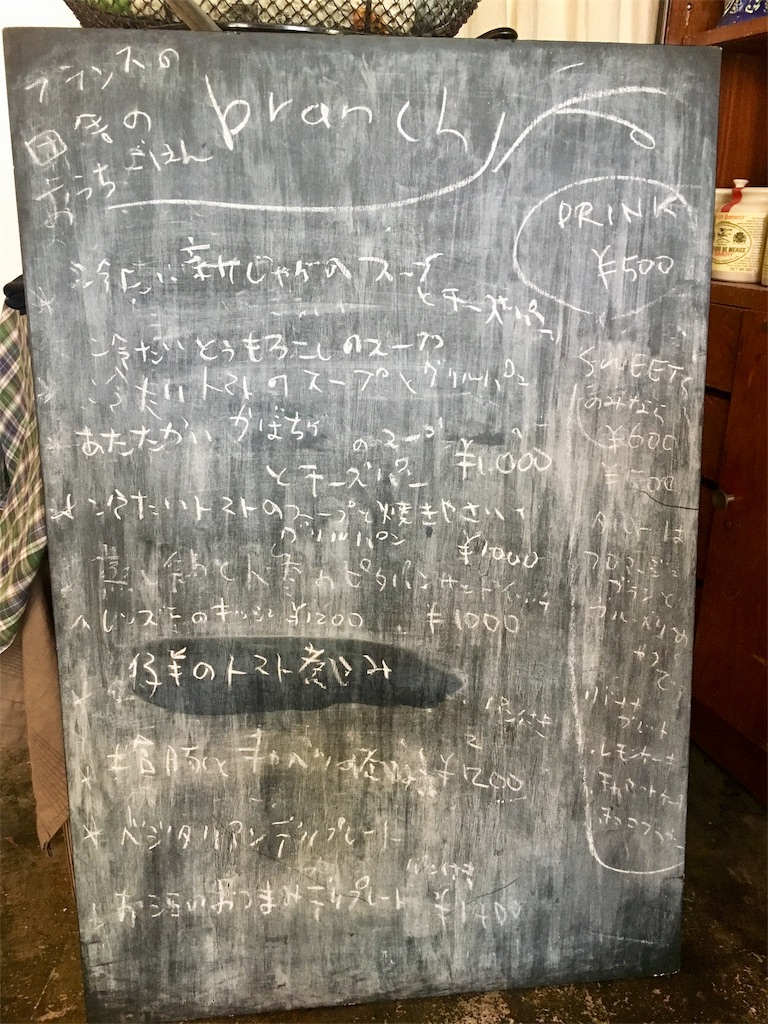 フランスの
田舎の
おうちごはん
branch
DRINK
¥500
冷たい新じゃがのスープ
とチーズパン
冷たいとうもろこしのスープ
冷たいトマトのスープとグリルパン
あたたかい かぼちゃのスープ
とチーズパン ¥1,000
冷たいトマトのスープと焼きやさい
グリルパン ¥1000
ピタパンサンドイッチ
レンズ豆のキッシュ ¥1200 ¥1000
仔羊のトマト煮込み
パン付き
塩豚とキャベツの煮込み ¥1200
ベジタリアンデリプレート
パン付き
お酒のおつまみデリプレート ¥1400
SWEETS
のみなら
¥600
タルトは
フロマージュ
ブランと
フルーツの
バナナ
ブレッド
レモンケーキ
キャロットケーキ